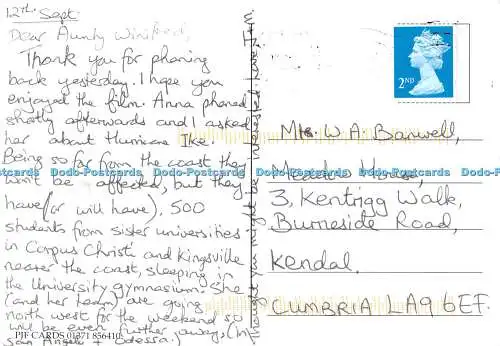 12th Sept.
Dear Aunty Winifred,
Thank you for phoning
back yesterday. I hope you
enjoyed the film. Anna phoned
shortly afterwards and I asked
her about Hurricane Ike.
Being so far from the coast they
won't be affected, but they
have (or will have), 500
students from sister universities
in Corpus Christi and Kingsville
nearer the coast, sleeping in
the University gymnasium. She
(and her team) are going
north west for the weekend so
will be even further away (in
San Angelo + Odessa).
PJF CARDS 01371 856410
Thought you might be interested. Love
2ND
W.A. Banwell,
Meade House,
3, Kentrigg Walk,
Burneside Road,
Kendal.
CUMBRIA LA9 6EF.
Dodo-Postcards Dodo-Postcards Dodo-Postcards Dodo-Postcards